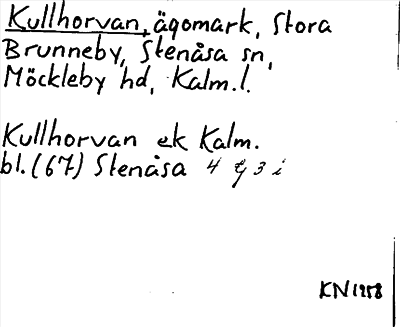 Kullhorvan, ägomark, Stora
Brunneby, Stenåsa sn,
Möckleby hd, Kalm.l.
Kullhorvan ek Kalm.
bl. (67) Stenåsa 4 3 i
KN 1958